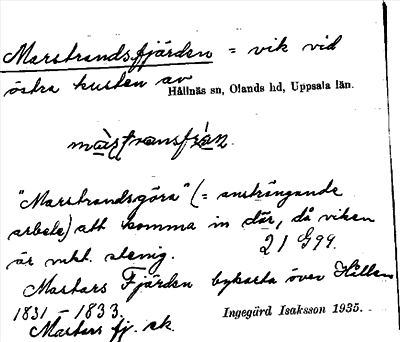 Marstrandsfjärden = vik vid
östra kusten av
Hållnäs sn, Olands hd, Uppsala län.
"Marstrandsgöra" (= ansträngande
arbete) att komma in där, då viken
är mkt. stenig.
21 G99.
Mastars Fjärden bykarta över Hållen
1831 – 1833.
Ingegärd Isaksson 1935.
Mastars fj. ek.